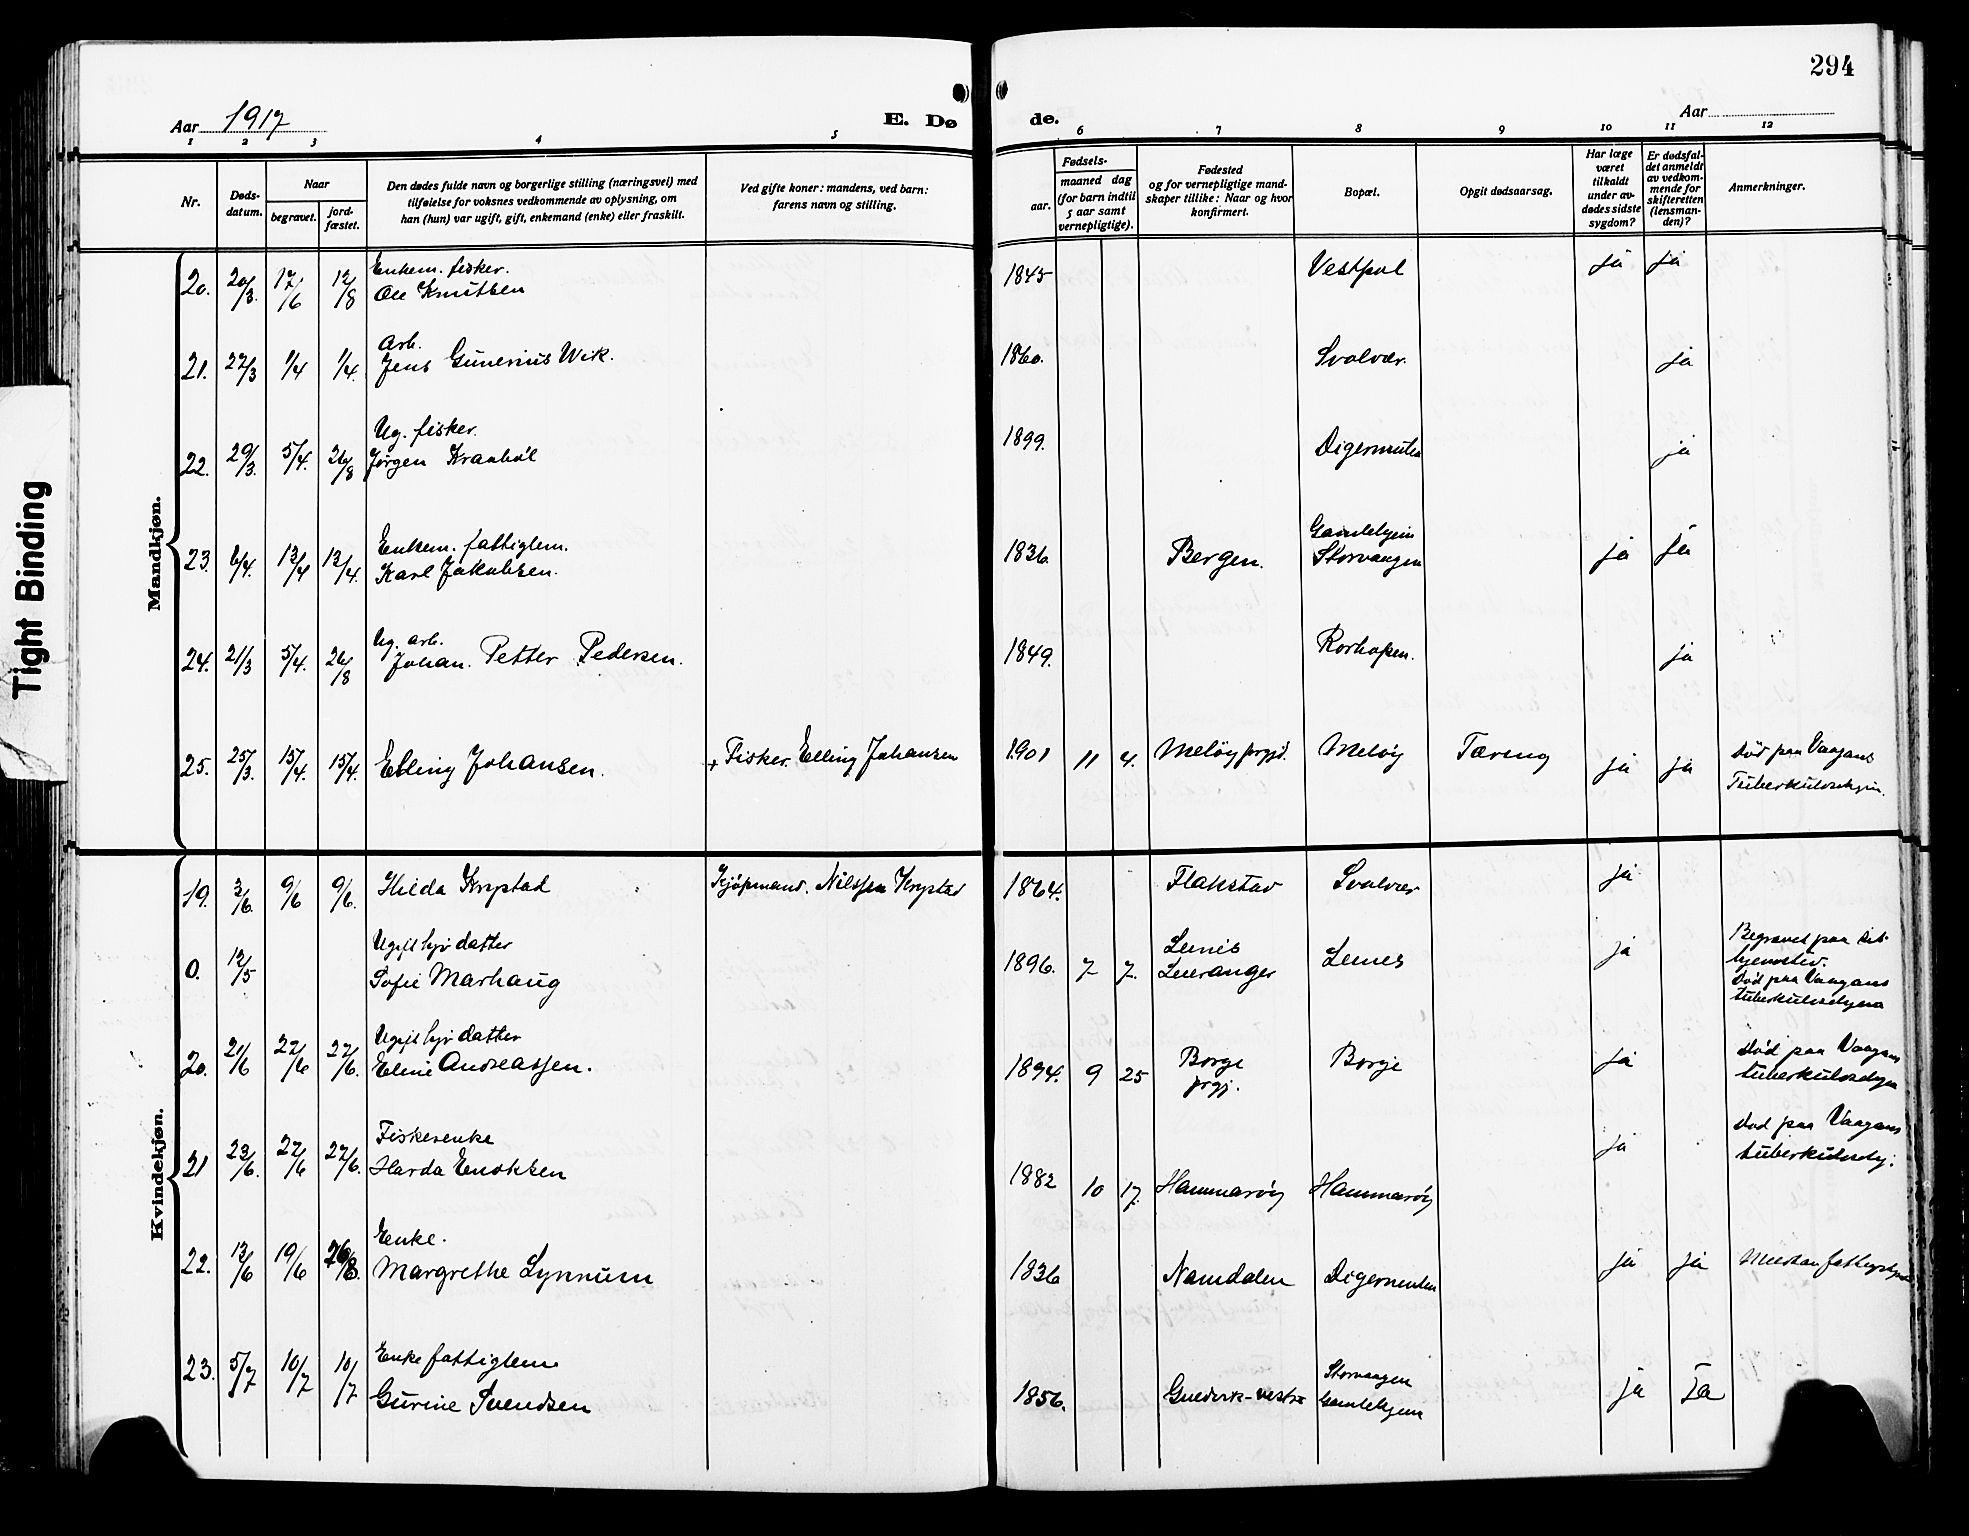 294
Aar 1917
E. Dø
de.
Aar
1 2 3 4 5 6 7 8 9 10 11 12
Nr.
Døds-
datum.
Naar
begravet.
jord-
fæstet.
Den dødes fulde navn og borgerlige stilling (næringsvei) med
tilføielse for voksnes vedkommende av oplysning, om
han (hun) var ugift, gift, enkemand (enke) eller fraskilt.
Ved gifte koner: mandens, ved barn:
farens navn og stilling.
Fødsels-
aar.
maaned dag
(for barn indtil
5 aar samt
vernepligtige).
Fødested
og for vernepligtige mand-
skaper tillike: Naar og hvor
konfirmert.
Bopæl.
Opgit dødsaarsag.
Har læge
været
tilkaldt
under av-
dødes sidste
sygdom?
Er dødsfal-
det anmeldt
av vedkom-
mende for
skifteretten
(lensman-
den)?
Anmerkninger.
Tight Binding
Mandkjøn.
Enkem. fisker.
20. 20/3. 17/6 12/8 Ole Knutsen 1845 Vestpol ja ja
Arb.
21. 27/3 1/4 1/4. Jens Gunerius Wik. 1860. Svolvær. ja
Ug. fisker.
22. 29/3. 5/4. 26/8 Jørgen 1899. Digermulen ja
Enkem. fattiglem. Gamlehjem
23. 6/4. 13/4 13/4. Karl Jakobsen. 1836. Bergen. Storvaagen ja ja
Ug. arb.
24. 21/3 5/4. 26/8 Johan Petter Pedersen. 1849. Rorhopen. ja
25. 25/3. 15/4. 15/4. Elling Johansen. + Fisker Elling Johansen 1901 11 4. Meløy prgjd. Meløy Tæring ja ja død paa Vaagans
Tuberkulosehjem.
Kvindekjøn.
19. 3/6. 9/6 9/6. Hilda Krystad Kjøpmand. Nilssen Krystad 1864. Flakstad Svolvær ja
Ugift hjv datter Begravet paa sit
hjemsted.
0. 12/5 Sofie Marhaug 1896. 7 7. Lenvik Leiranger Leines ja død paa Vaagans
tuberkulosehjem
Ugift hjv datter
20. 21/6 22/6 27/6. Eline Andreassen. 1894. 9 25 Borge prgj. Borge ja død paa Vaagans
tuberkulosehjem
Fiskerenke
21 23/6. 27/6 27/6. Harda Enoksen 1882 10 17. Hammarøy Hammarøy ja død paa Vaagans
tuberkulosehj.
Enke.
22. 13/6 19/6 26/8. Margrethe Lynnum 1836 Namdalen Digermulen ja ja
Enke fattiglem Storvaagen
23. 5/7 10/7 10/7 Gurine Svendsen 1856. Gamlehjem ja ja